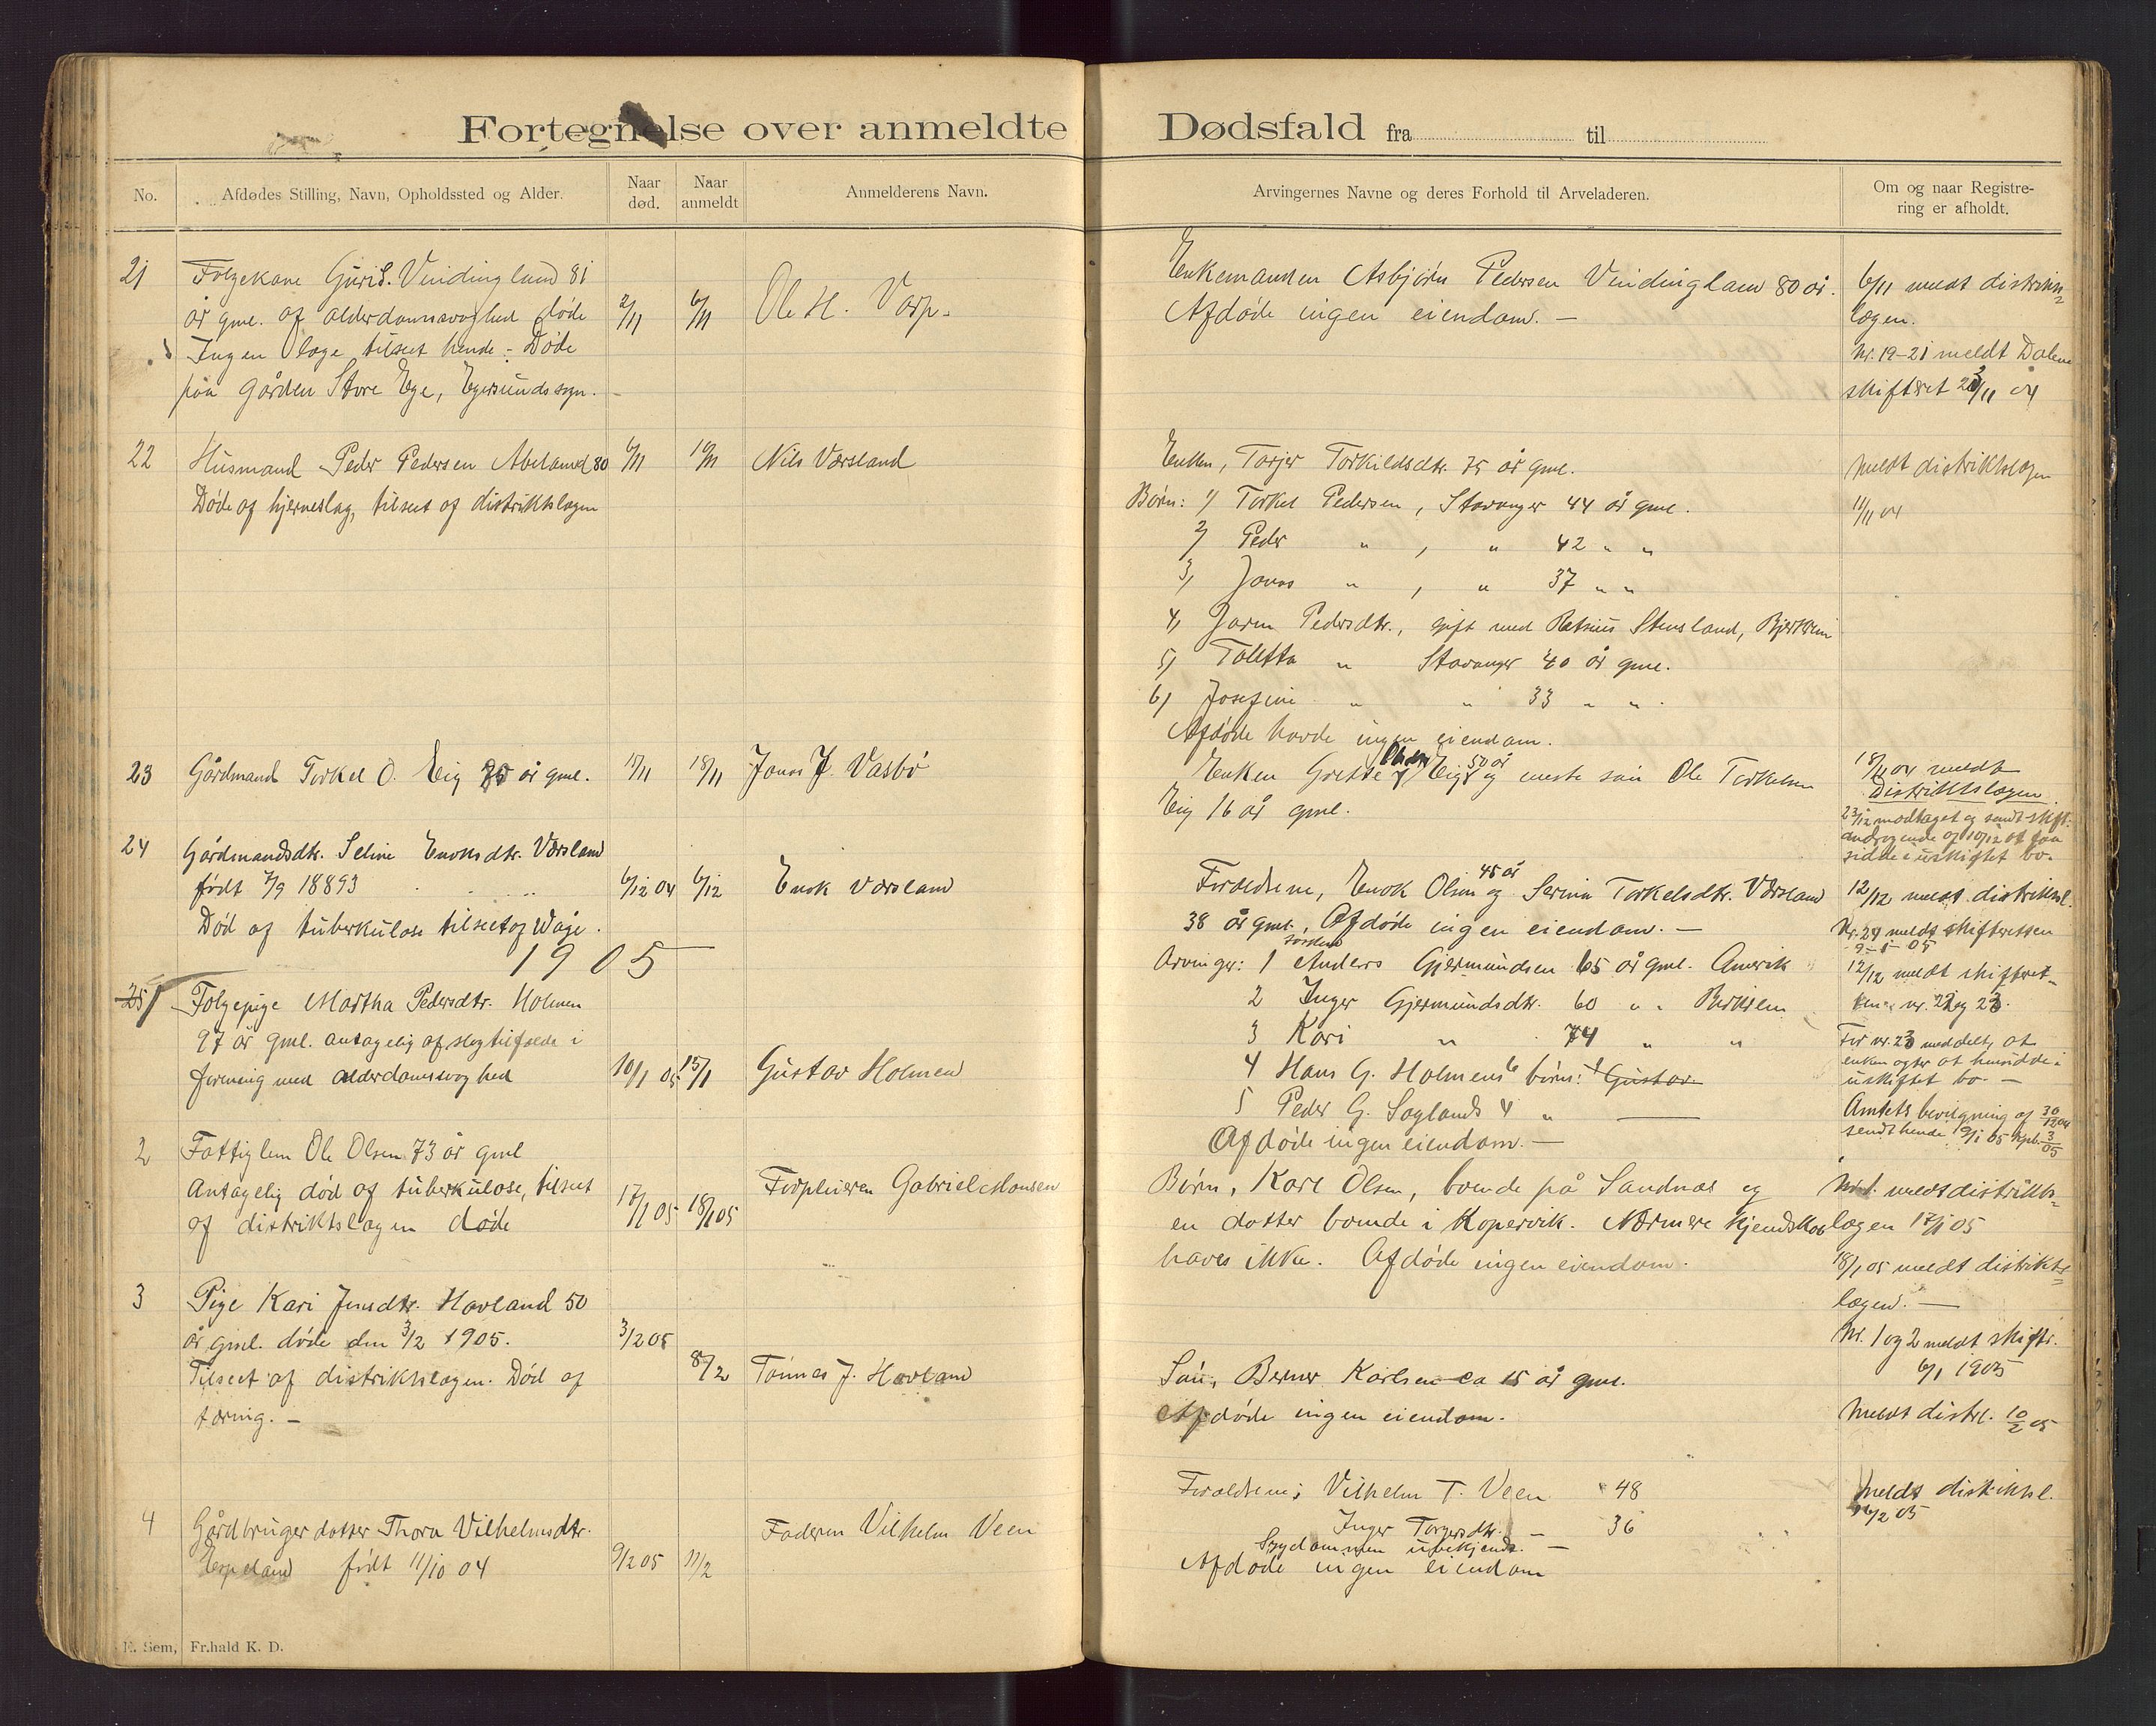 Fortegnelse over anmeldte Dødsfald fra til
No.
Afdødes Stilling, Navn, Opholdssted og Alder.
Naar død.
Naar anmeldt
Anmelderens Navn.
Arvingernes Navne og deres Forhold til Arveladeren.
Om og naar Registrering er afholdt.
21
Folgekone Guri S. Vindingland 81
år gml. af alderdomssvaghed døde
Ingen læge tilseet hende - Døde
paa gården Store Ege, Egersunds sogn.
2/11
6/11
Ole H. Varp.
Enkemanden Asbjørn Pedersen Vindingland 80 år.
Afdøde ingen eiendom. —
6/11 meldt distrikts=
lægen.
Nr. 19-21 meldt Dalene
skifteret 23/11 04
22
Husmand Peder Pedersen Abeland 80
Døde af hjerneslag, tilseet af distriktslægen
6/11
10/11
Nils Værsland
Enken, Torjer Torkildsdtr. 75 år gml.
Børn: 1/ Torkel Pedersen, Stavanger 44 år gml.
2/ Peder " , " 42 " "
3/ Jonas " , " 37 " "
4/ Jaren Pedersdtr., gift med Rasmus Stensland, Bjerkreim
5/ Toletta " Stavanger 40 år gml.
6/ Josefine " " 33 " ".
Afdøde havde ingen eiendom.
Meldt distriktslægen
11/11 04
23
Gårdmand Torkel O. Eig 75 år gml.
17/11
18/11
Jonas J. Vasbø
Enken Grette Olsdtr. Eig, 50 år og eneste søn Ole Torkelsen
Eig 16 år gml.
18/11 04 meldt
Distriktslægen.
23/12 modtaget og sendt skift.
andragende af 10/12 at faa
sidde i uskiftet bo.
24
Gårdmandsdtr. Seline Enoksdtr. Værsland
født 7/9 18893
Død af tuberkulose tilseet af Waage.
6/12 04
6/12
Enok Værsland
Forældrene, Enok Olsen 45 år og Serina Torkelsdtr. Værsland
38 år gml. Afdøde ingen eiendom. —
12/12 meldt distriktsl.
Nr. 24 meldt skifteretten
9-1-05
1905
25 1
Folgepige Martha Pedersdtr. Holmen
97 år gml. antagelig af slagtilfælde i
forening med alderdomssvaghed
10/1 05
15/1
Gustav Holmen
Arvinger: 1 Anders Gjermundsen 65 år gml. Amerik
2 Inger Gjermundsdtr. 60 " " Birkjem
3 Kari " 74 " "
4 Hans G. Holmens 6 børn: 1 Gustav
5 Peder G. Saglands 4 " —
Afdøde ingen eiendom. —
12/12 meldt skifteret-
ten nr. 22 og 23.
For nr. 23 meddelt, at
enken agter at hensidde i
uskiftet bo. —
Amtets bevilgning af 30/12 04
sendt hende 9/1 05 kpl. 3/05
2
Fattiglem Ole Olsen 73 år gml
Antagelig død af tuberkulose, tilseet
af distriktslægen døde
17/1 05
18/1 05
Forpleieren Gabriel Hansen
Børn, Karl Olsen, boende på Sandnæs og
en datter boende i Kopervik. Nærmere kjendskab
haves ikke. Afdøde ingen eiendom.
Nr. 1. meldt distrikts=
lægen 17/1 05
18/1 05 meldt distrikts=
lægen. —
Nr. 1 og 2 meldt skiftr.
6/1 1905
3
Pige Kari Jensdtr. Hovland 50
år gml. døde den 3/2 1905.
Tilseet af distriktslægen. Død af
tæring. —
3/2 05
8/2
Tønnes J. Hovland
Søn, Berner Karlsen ca 15 år gml.
Afdøde ingen eiendom.
Meldt distrl. 10/2 05
4
Gårdbruger datter Thora Vilhelmsdtr.
Espeland født 11/10 04
9/2 05
11/2
Faderen Vilhelm Veen
Forældrene; Vilhelm T. Veen 48
Inger Torgersdtr. — 36
Sygdommen ubekjendt. —
Afdøde ingen eiendom
Meldt distriktsl.
11/2 05
E. Sem, Fr.hald K. D.